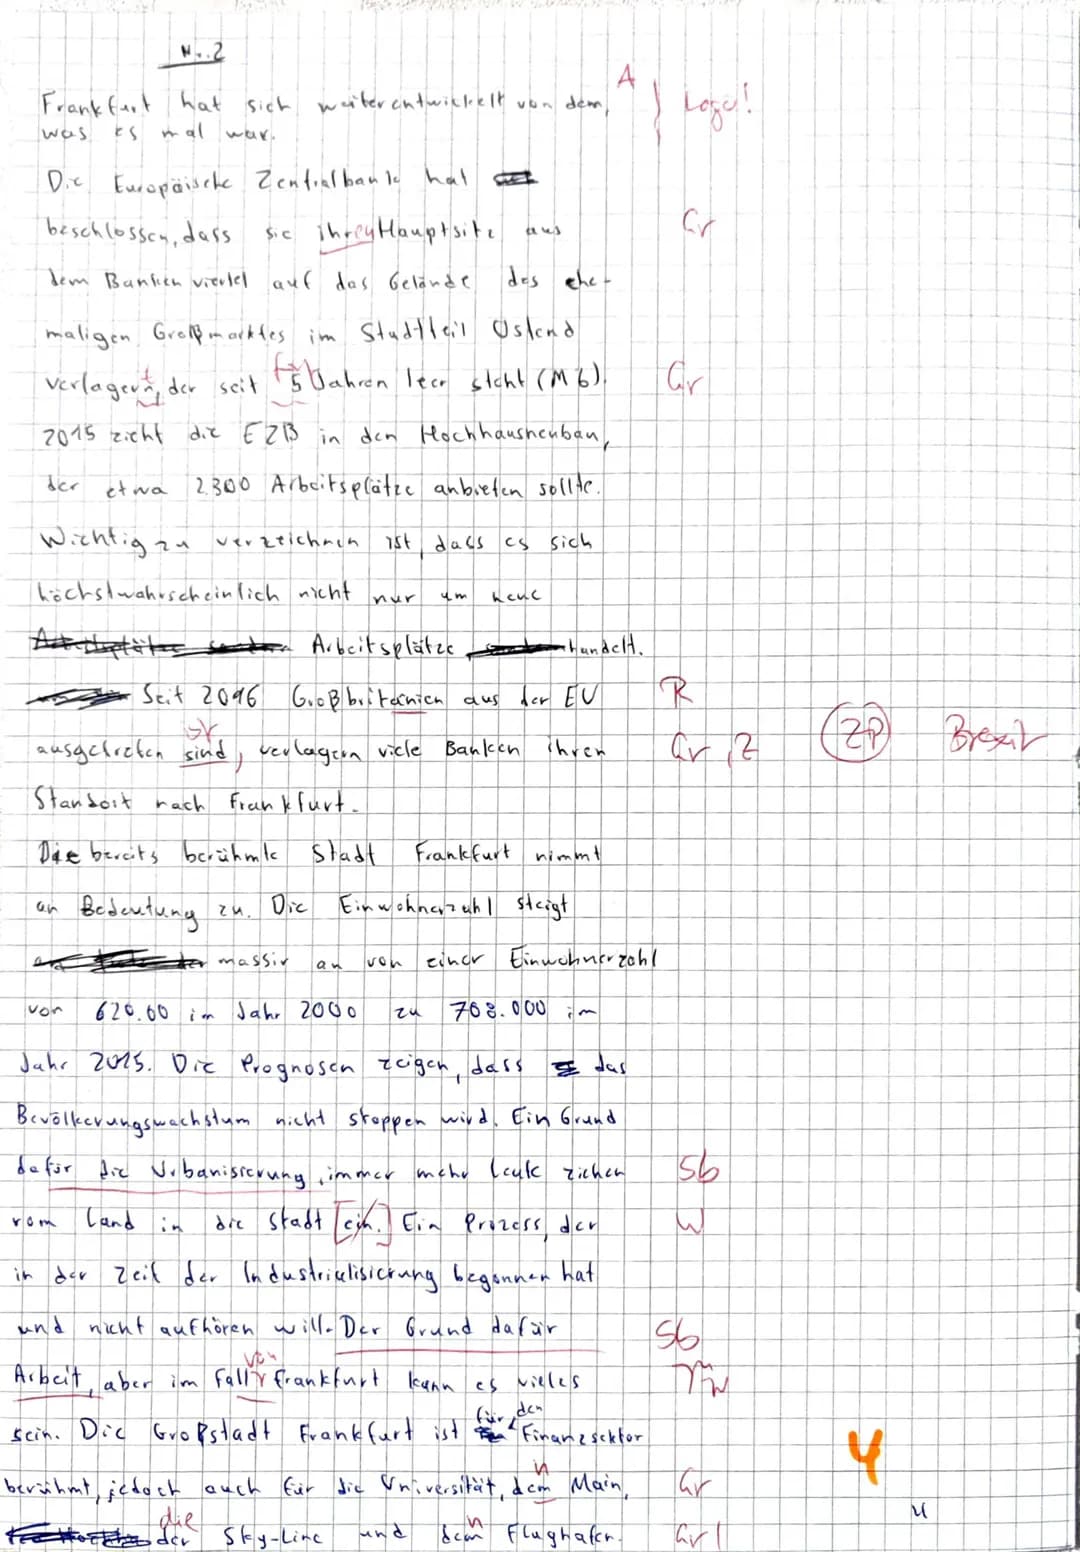 Nr. 2
Frankfurt hat sich weiterentwickelt von dem, A
was es mal war. Logo!
Die Europäische Zentralbank hat
beschlossen, dass sie ihren Hauptsitz aus Gr
dem Banken viertel auf das Gelände des ehe-
maligen Großmarktes im Stadtteil Ostend
verlagern, der seit 5 Jahren leer steht (M6). Gr
2015 zieht die EZB in den Hochhausneubau,
der etwa 2.300 Arbeitsplätze anbieten sollte.
Wichtig zu verzeichnen ist, dass es sich
höchstwahrscheinlich nicht nur um neue
Arbeitsplätze handelt.
Seit 2016 Großbritanien aus der EU R
ist
ausgetreten sind, verlagern viele Banken ihren Gr, Z ZP Brexit
Standort nach Frankfurt.
Die bereits berühmte Stadt Frankfurt nimmt
an Bedeutung zu. Die Einwohnerzahl steigt
massiv an von einer Einwohnerzahl
von 620.00 im Jahr 2000 zu 708.000 im
Jahr 2015. Die Prognosen zeigen, dass das
Bevölkerungswachstum nicht stoppen wird. Ein Grund
dafür die Urbanisierung, immer mehr Leute ziehen Sb
vom Land in die Stadt [ein.] Ein Prozess, der W
in der Zeit der Industrialisierung begonnen hat
und nicht aufhören will. Der Grund dafür Sb
von
Arbeit, aber im Fall Frankfurt kann es vieles
sein. Die Großstadt Frankfurt ist für den Finanzsektor
4
n
berühmt, jedoch auch für die Universität, dem Main, Gr
die n
der Sky-Line und dem Flughafen. Gr!